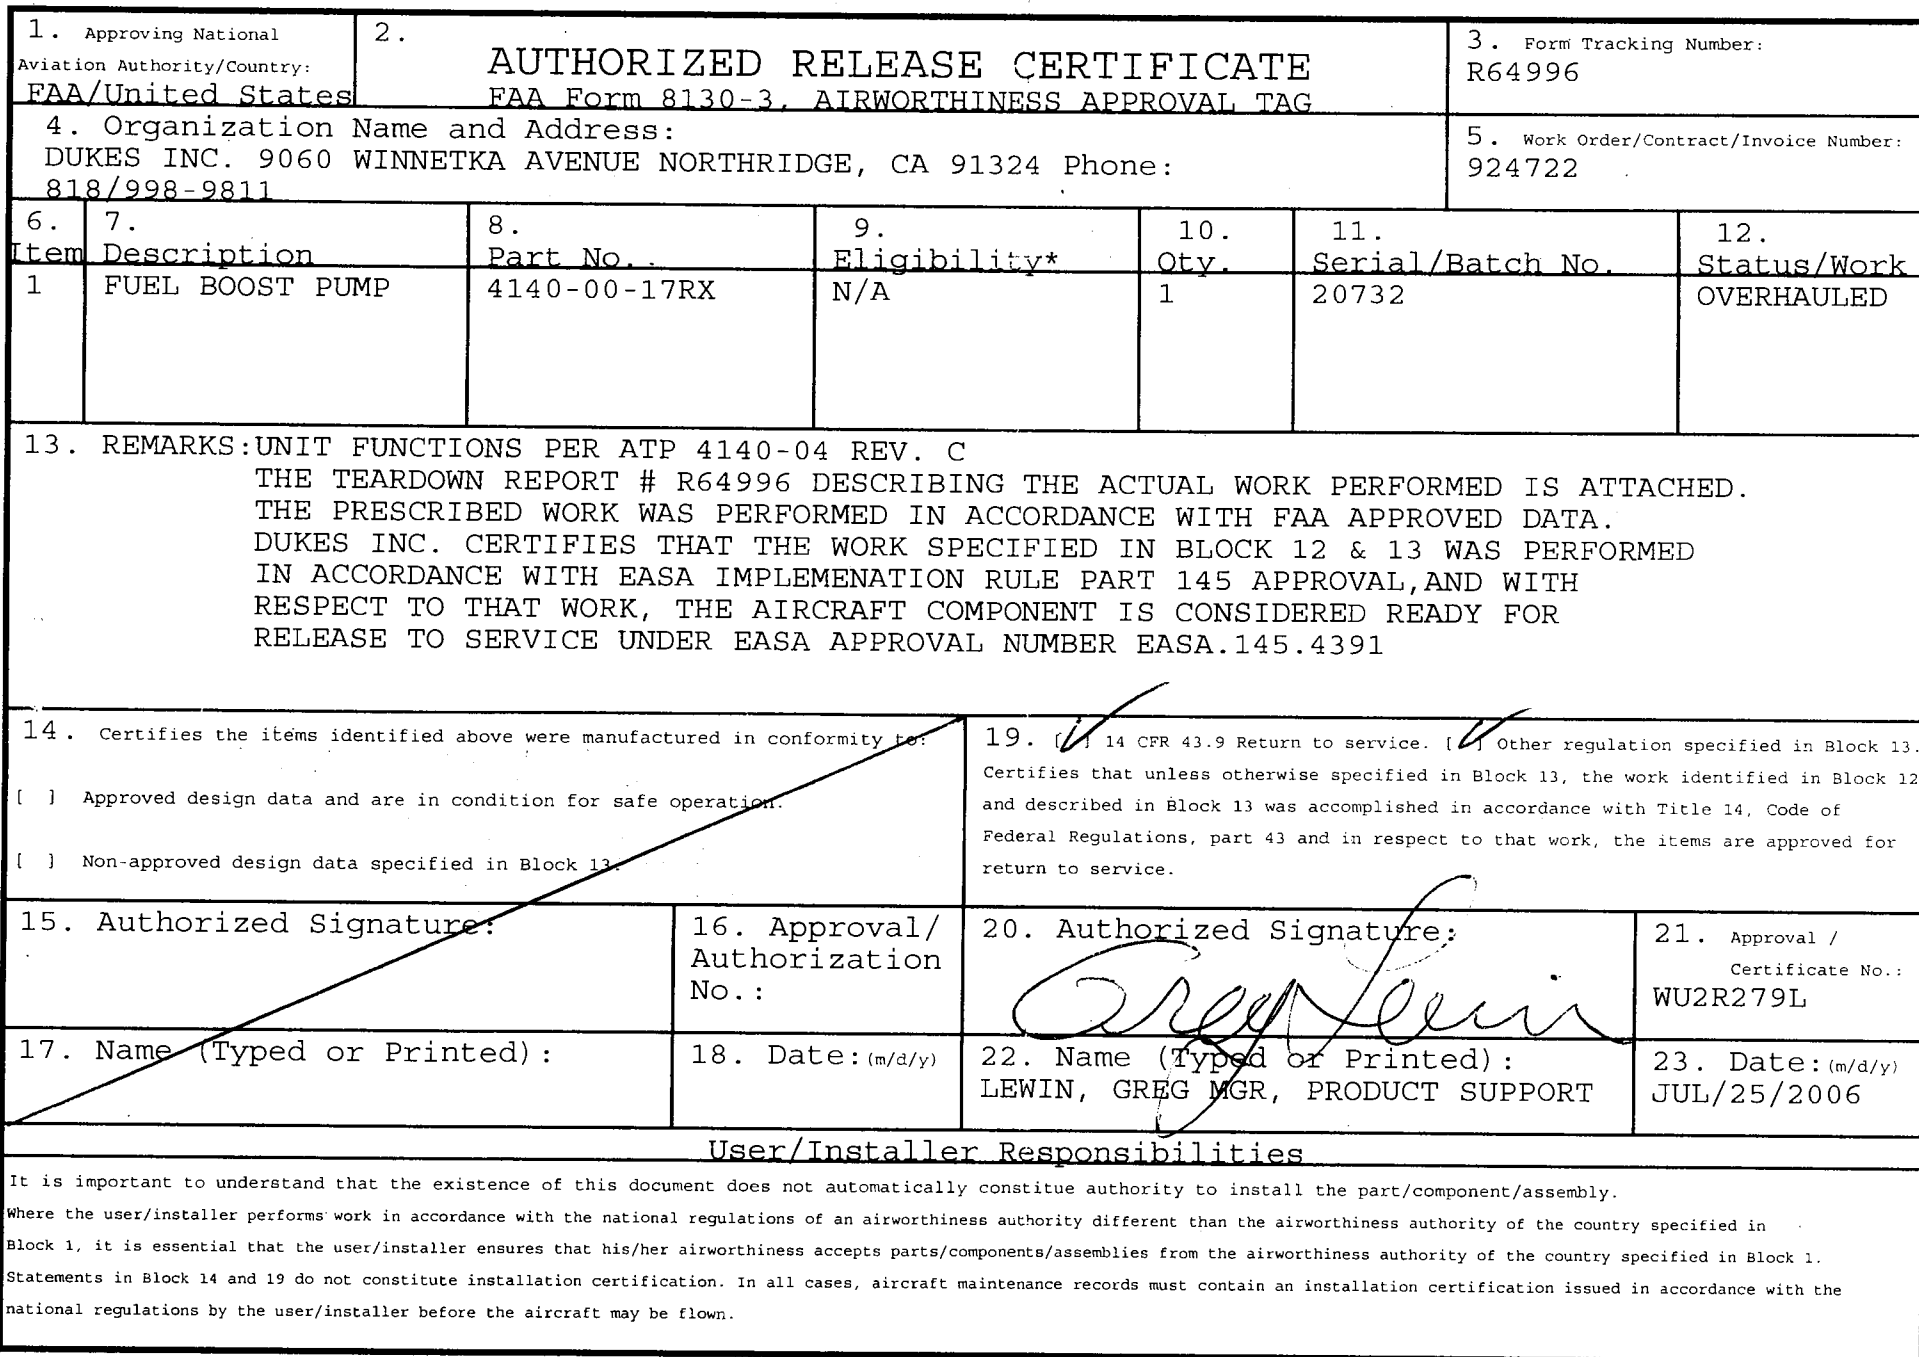 1. Approving National
Aviation Authority/Country:
FAA/United States
2.
AUTHORIZED RELEASE CERTIFICATE
FAA Form 8130-3, AIRWORTHINESS APPROVAL TAG
3. Form Tracking Number:
R64996
4. Organization Name and Address:
DUKES INC. 9060 WINNETKA AVENUE NORTHRIDGE, CA 91324 Phone:
818/998-9811
5. Work Order/Contract/Invoice Number:
924722
6.
Item
7.
Description
8.
Part No.
9.
Eligibility*
10.
Qty.
11.
Serial/Batch No.
12.
Status/Work
1
FUEL BOOST PUMP
4140-00-17RX
N/A
1
20732
OVERHAULED
13. REMARKS:UNIT FUNCTIONS PER ATP 4140-04 REV. C
THE TEARDOWN REPORT # R64996 DESCRIBING THE ACTUAL WORK PERFORMED IS ATTACHED.
THE PRESCRIBED WORK WAS PERFORMED IN ACCORDANCE WITH FAA APPROVED DATA.
DUKES INC. CERTIFIES THAT THE WORK SPECIFIED IN BLOCK 12 & 13 WAS PERFORMED
IN ACCORDANCE WITH EASA IMPLEMENATION RULE PART 145 APPROVAL,AND WITH
RESPECT TO THAT WORK, THE AIRCRAFT COMPONENT IS CONSIDERED READY FOR
RELEASE TO SERVICE UNDER EASA APPROVAL NUMBER EASA.145.4391
14. Certifies the items identified above were manufactured in conformity to:
[ ] Approved design data and are in condition for safe operation.
[ ] Non-approved design data specified in Block 13.
19. [✓] 14 CFR 43.9 Return to service. [✓] Other regulation specified in Block 13.
Certifies that unless otherwise specified in Block 13, the work identified in Block 12
and described in Block 13 was accomplished in accordance with Title 14, Code of
Federal Regulations, part 43 and in respect to that work, the items are approved for
return to service.
15. Authorized Signature:
16. Approval/
Authorization
No.:
20. Authorized Signature:
Greg Lewin
21. Approval /
Certificate No.:
WU2R279L
17. Name (Typed or Printed):
18. Date:(m/d/y)
22. Name (Typed or Printed):
LEWIN, GREG MGR, PRODUCT SUPPORT
23. Date:(m/d/y)
JUL/25/2006
User/Installer Responsibilities
It is important to understand that the existence of this document does not automatically constitue authority to install the part/component/assembly.
Where the user/installer performs work in accordance with the national regulations of an airworthiness authority different than the airworthiness authority of the country specified in
Block 1, it is essential that the user/installer ensures that his/her airworthiness accepts parts/components/assemblies from the airworthiness authority of the country specified in Block 1.
Statements in Block 14 and 19 do not constitute installation certification. In all cases, aircraft maintenance records must contain an installation certification issued in accordance with the
national regulations by the user/installer before the aircraft may be flown.